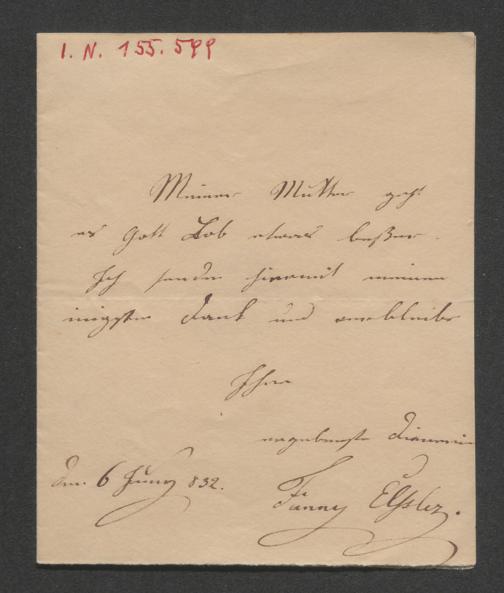 I. N. 155.599
Meiner Mutter geht
es Gott Lob etwas beßer.
Ich sende hiermit meinen
innigsten Dank und verbleibe
Ihre
ergebenste Dienerin
Den 6 Juny 832.
Fanny Elßler.